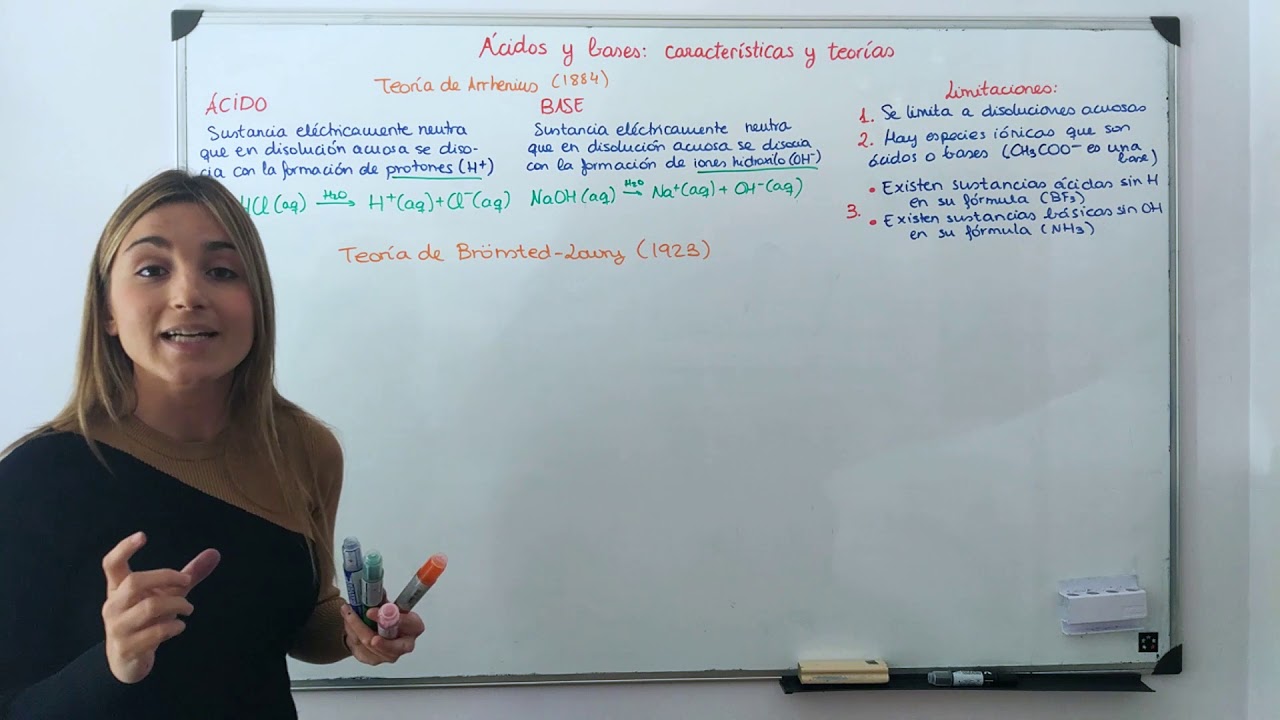 Ácidos y bases: características y teorías
Teoría de Arrhenius (1884)
ÁCIDO
Sustancia eléctricamente neutra
que en disolución acuosa se diso-
cia con la formación de protones (H⁺)
HCl(aq) —H₂O→ H⁺(aq)+Cl⁻(aq)
BASE
Sustancia eléctricamente neutra
que en disolución acuosa se disocia
con la formación de iones hidroxilo (OH⁻)
NaOH(aq) —H₂O→ Na⁺(aq) + OH⁻(aq)
Limitaciones:
1. Se limita a disoluciones acuosas
2. Hay especies iónicas que son
ácidos o bases (CH₃COO⁻ es una
base)
3.
• Existen sustancias ácidas sin H
en su fórmula (BF₃)
• Existen sustancias básicas sin OH
en su fórmula (NH₃)
Teoría de Brönsted-Lowry (1923)